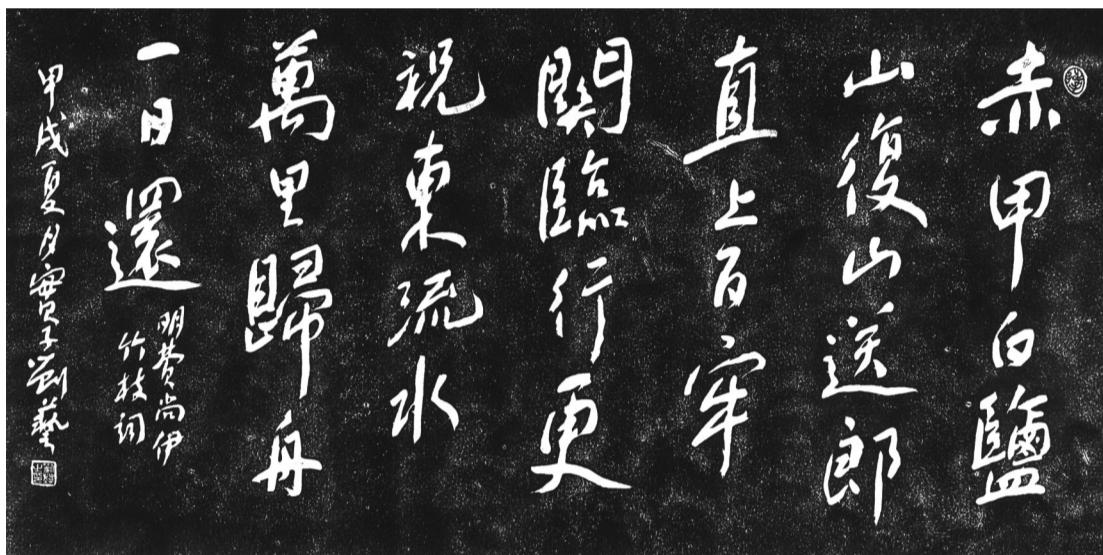 赤甲白鹽
山復山送郎
直上百牢
関臨行更
祝東流水
萬里歸舟
一日還
明費尚伊
竹枝詞
甲戌夏月寳子劉藝